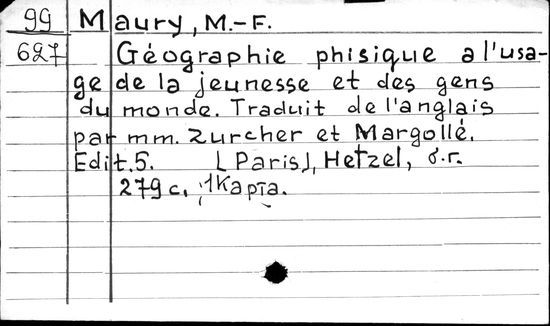 99 Maury, M.-F.
627 Géographie phisique a l'usa-
ge de la jeunesse et des gens
du monde. Traduit de l'anglais
par mm. Zurcher et Margollé.
Edit.5. [Paris], Hetzel, б.г.
279 с., 1 карта.